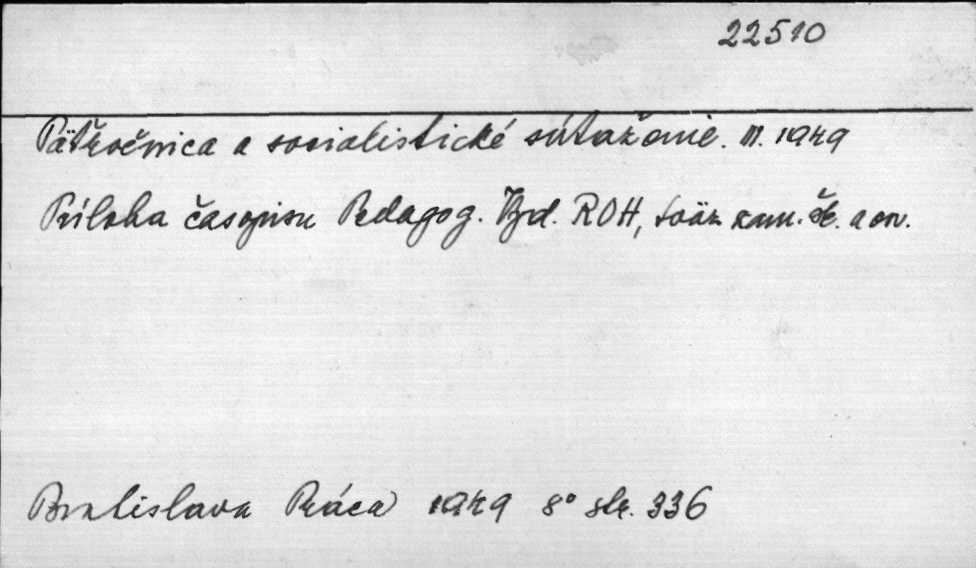 22510
Päťročnica a socialistické súťaženie. III. 1949
Príloha časopisu Pedagog. Vyd. ROH, sväz zam. šk. a os.
Bratislava Práca 1949 8° str. 336